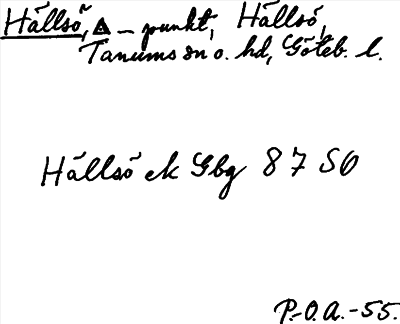 Hällsö, △ – punkt, Hällsö,
Tanums sn o. hd, Göteb. l.
Hällsö ek Gbg 87 SO
P.-O.A.-55.